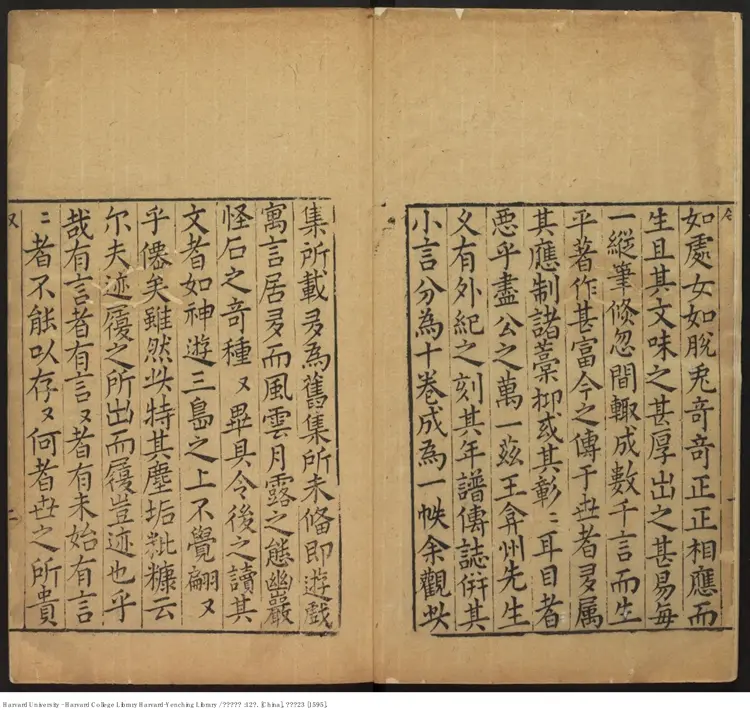 如處女如脫兎奇奇正正相應而
生且其文味之甚厚出之甚易每
一縱筆倏忽間輙成數千言而生
平著作甚富今之傳于世者多属
其應制諸藁抑或其彰〻耳目者
惡乎盡公之萬一茲王弇州先生
又有外紀之刻其年譜傳誌倂其
小言分為十卷成為一帙余觀此
集所載多為舊集所未俻即遊戲
寓言居多而風雲月露之態幽巖
怪石之奇種〻畢具令後之讀其
文者如神遊三島之上不覺翩〻
乎僊矣雖然此特其塵垢粃糠云
尔夫迹履之所出而履豈迹也乎
哉有言者有言〻者有未始有言
〻者不能以存〻何者世之所貴
二
Harvard University - Harvard College Library Harvard-Yenching Library / ????? :12?. [China], ???23 [1595].